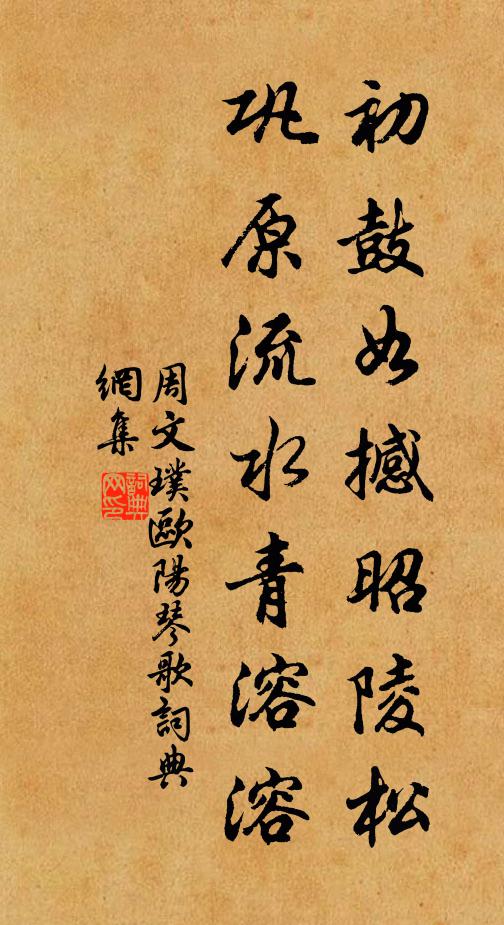 初鼓如撼昭陵松
巩原流水青溶溶
周文璞歐陽琴歌詞典
網集
詞典
网印